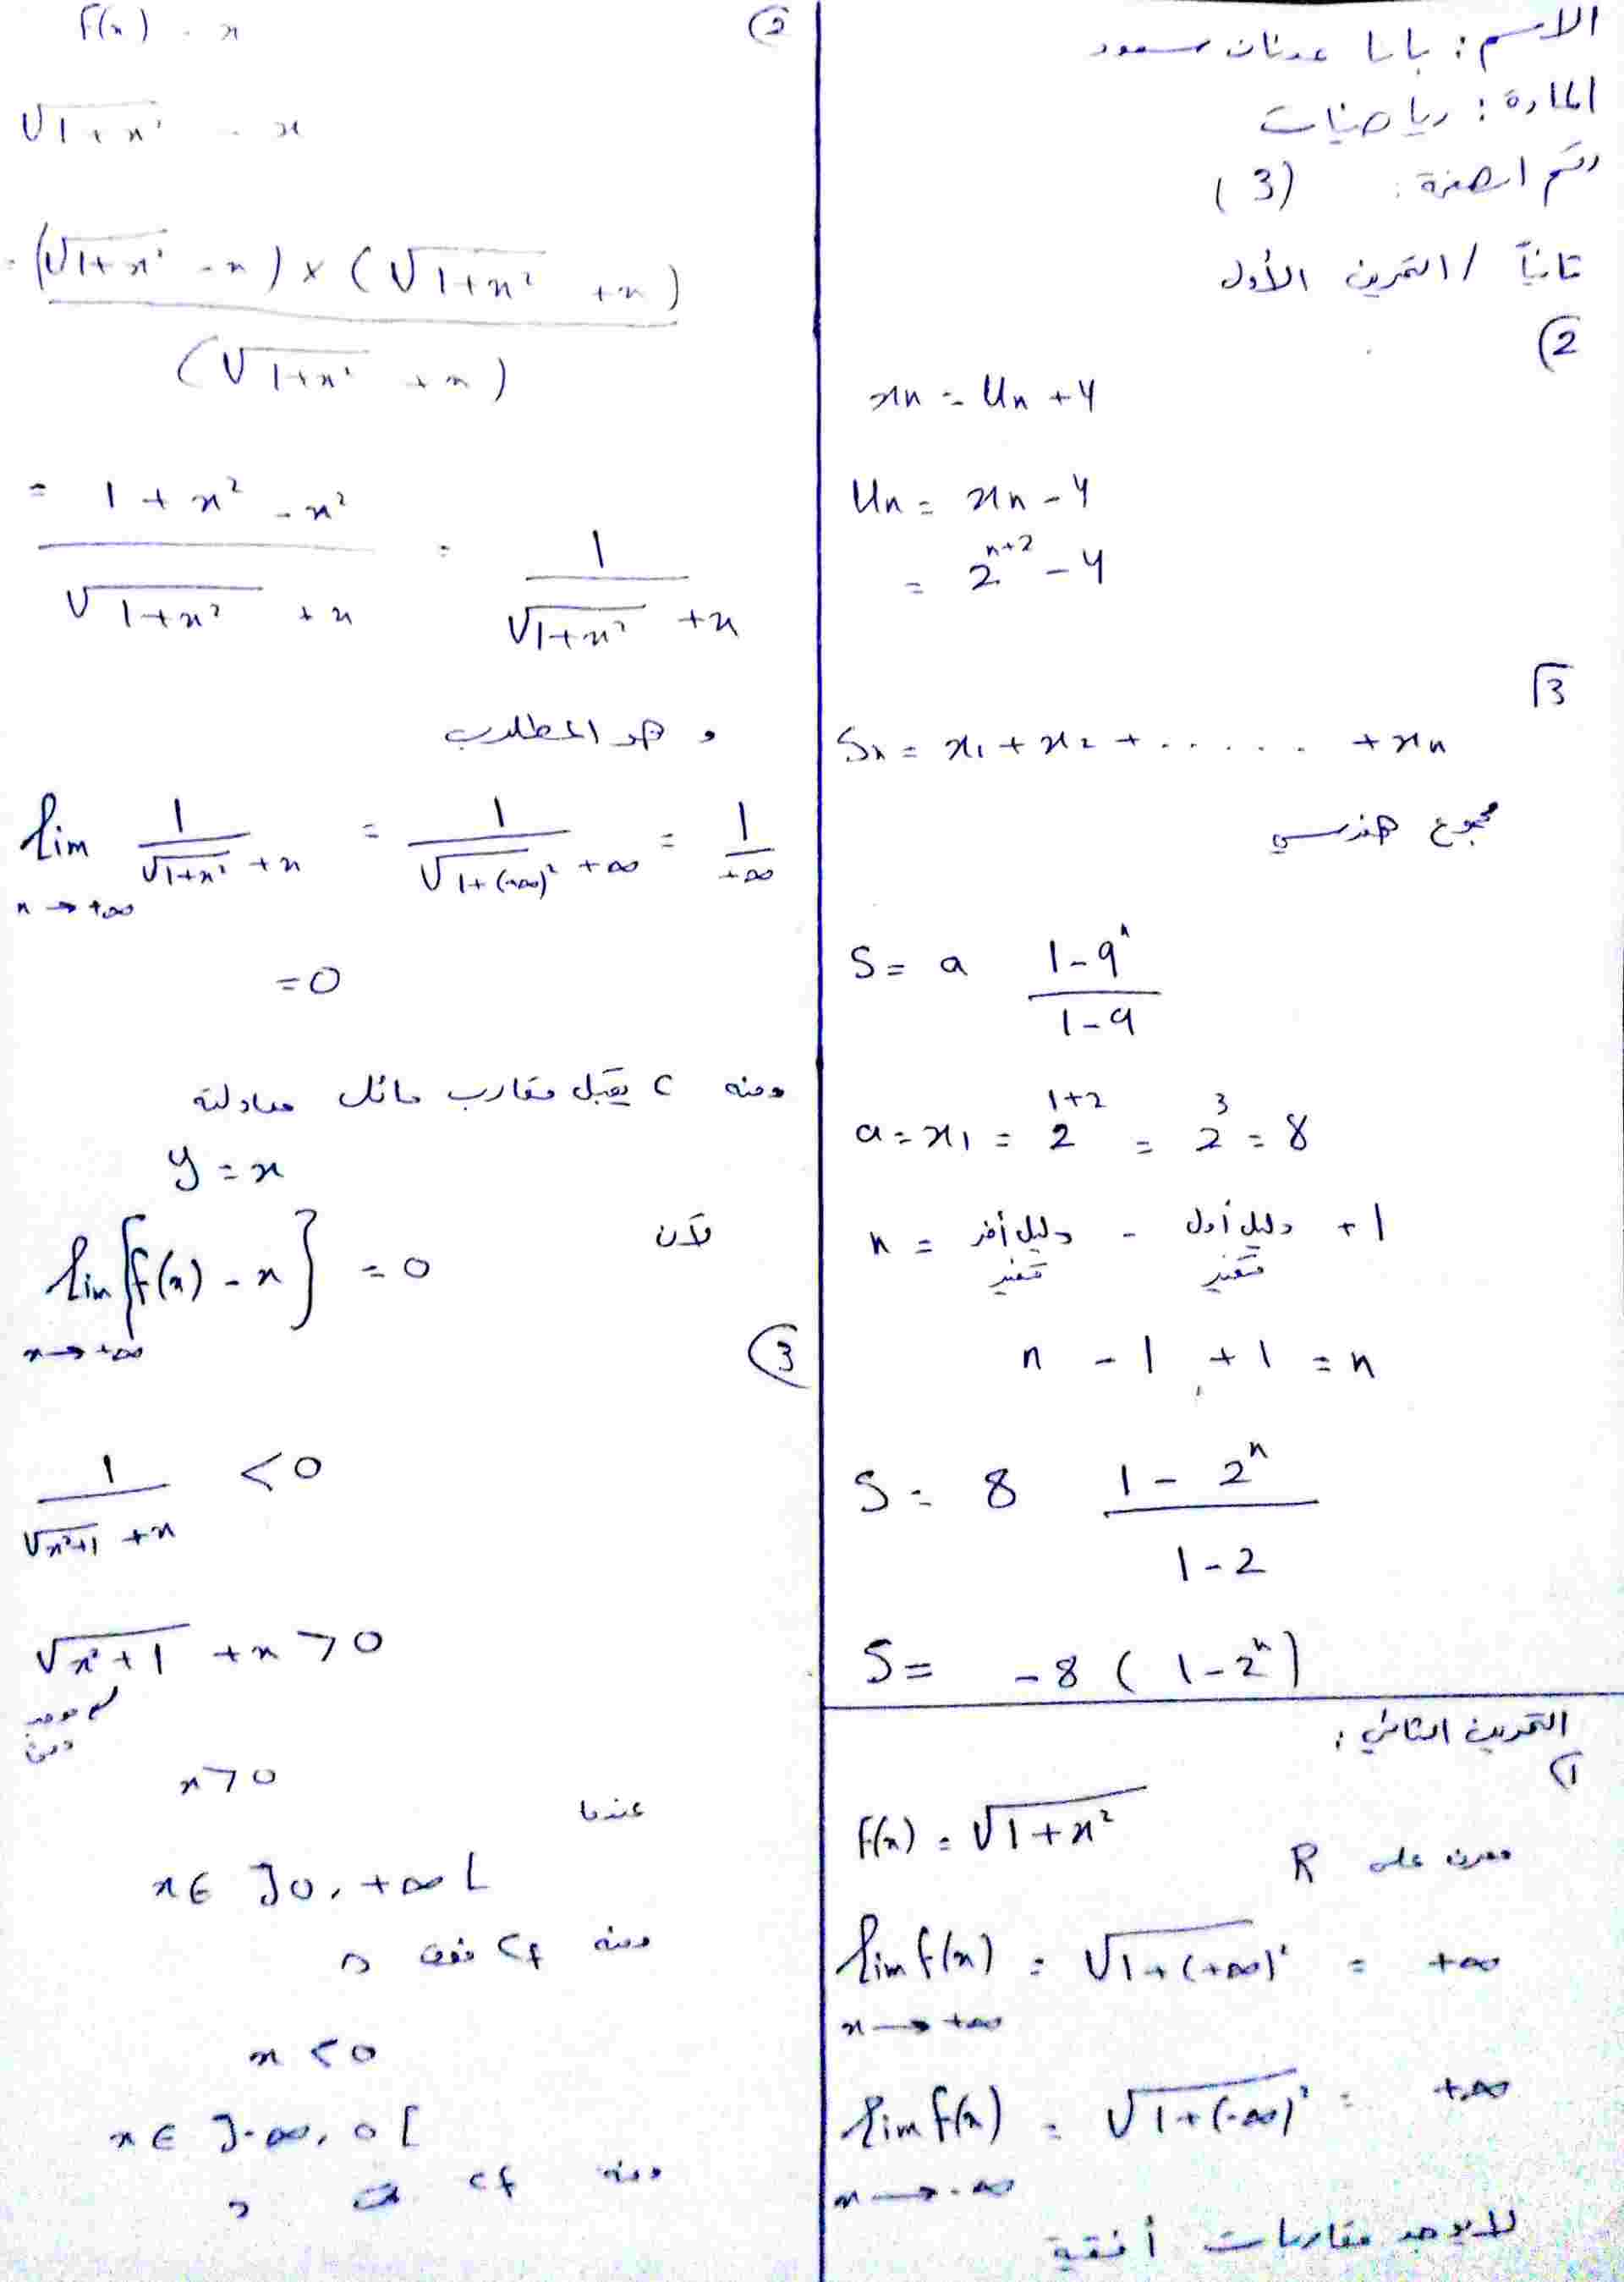 الاسم : بانا عدنان سعود
المادة : رياضيات
رقم الصفحة : (3)
ثانياً / التمرين الأول
2
xn = Un + 4
Un = xn - 4
= 2^{n+2} - 4
3
Sn = x1 + x2 + ...... + xn
مجموع هندسي
S = a \frac{1-q^n}{1-q}
a = x1 = 2^{1+2} = 2^3 = 8
n = دليل أخر متغير - دليل أول متغير + 1
n - 1 + 1 = n
S = 8 \frac{1-2^n}{1-2}
S = -8 ( 1-2^n )
التمرين الثاني :
1
f(x) = √(1+x²) معرف على R
lim f(x) = √(1+(+∞)²) = +∞
x → +∞
lim f(x) = √(1+(-∞)²) = +∞
x → -∞
لا يوجد مقاربات أفقية
2
f(x) - x
√(1+x²) - x
= \frac{(√(1+x²) - x) × (√(1+x²) + x)}{(√(1+x²) + x)}
= \frac{1+x² - x²}{√(1+x²) + x} = \frac{1}{√(1+x²) + x}
وهو المطلوب
lim \frac{1}{√(1+x²) + x} = \frac{1}{√(1+(+∞)²) + ∞} = \frac{1}{+∞}
x → +∞
= 0
ومنه C يقبل مقارب مائل معادلته
y = x
لأن
lim [f(x) - x] = 0
x → +∞
3
\frac{1}{√(x²+1) + x} < 0
√(x²+1) + x > 0
x > 0
عندما
x ∈ ]0, +∞[
ومنه Cf فوق
x < 0
x ∈ ]-∞, 0[
ومنه Cf